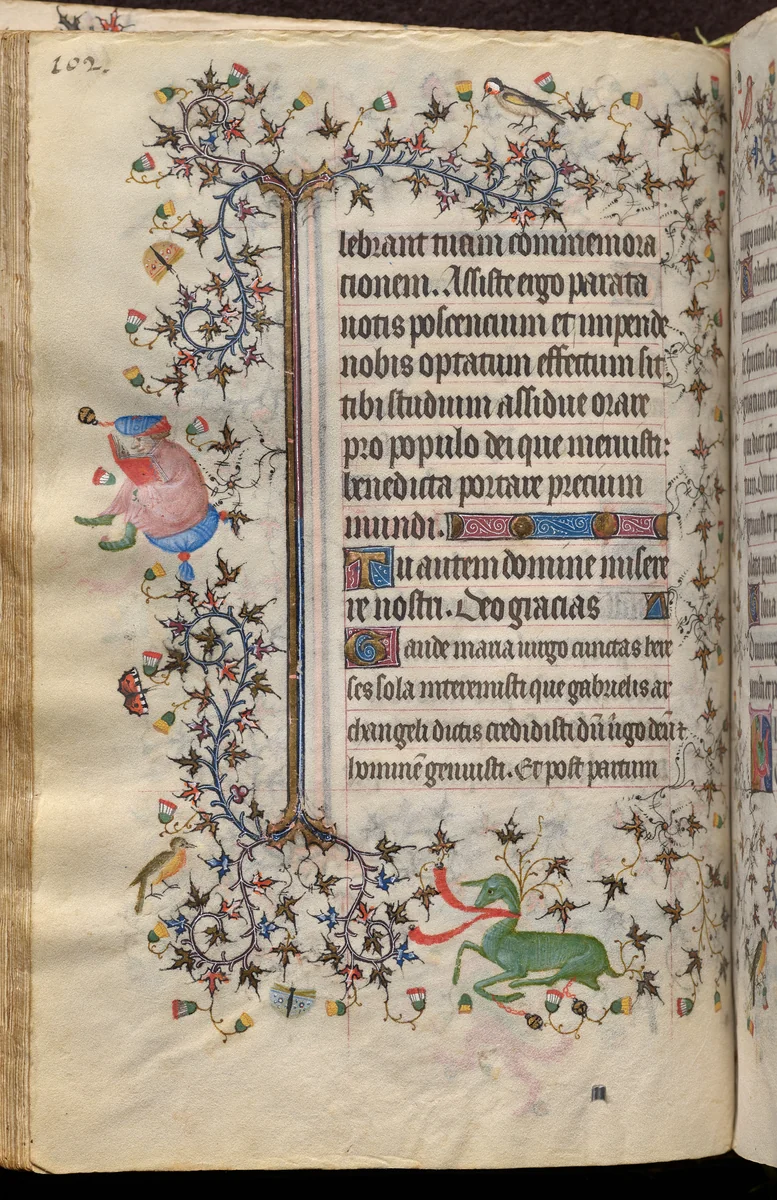 102.
lebrant tuam commemora
tionem. Assiste ergo parata
uotis poscencium et impende
nobis optatum effectum sit
tibi studium assidue orare
pro populo dei que meruisti:
benedicta portare precium
mundi.
Tu autem domine misere
re nostri. Deo gracias
Gaude maria uirgo cunctas here
ses sola interemisti que gabrielis ar
changeli dictis credidisti dū ūgo deū t
hominē genuisti. Et post partum